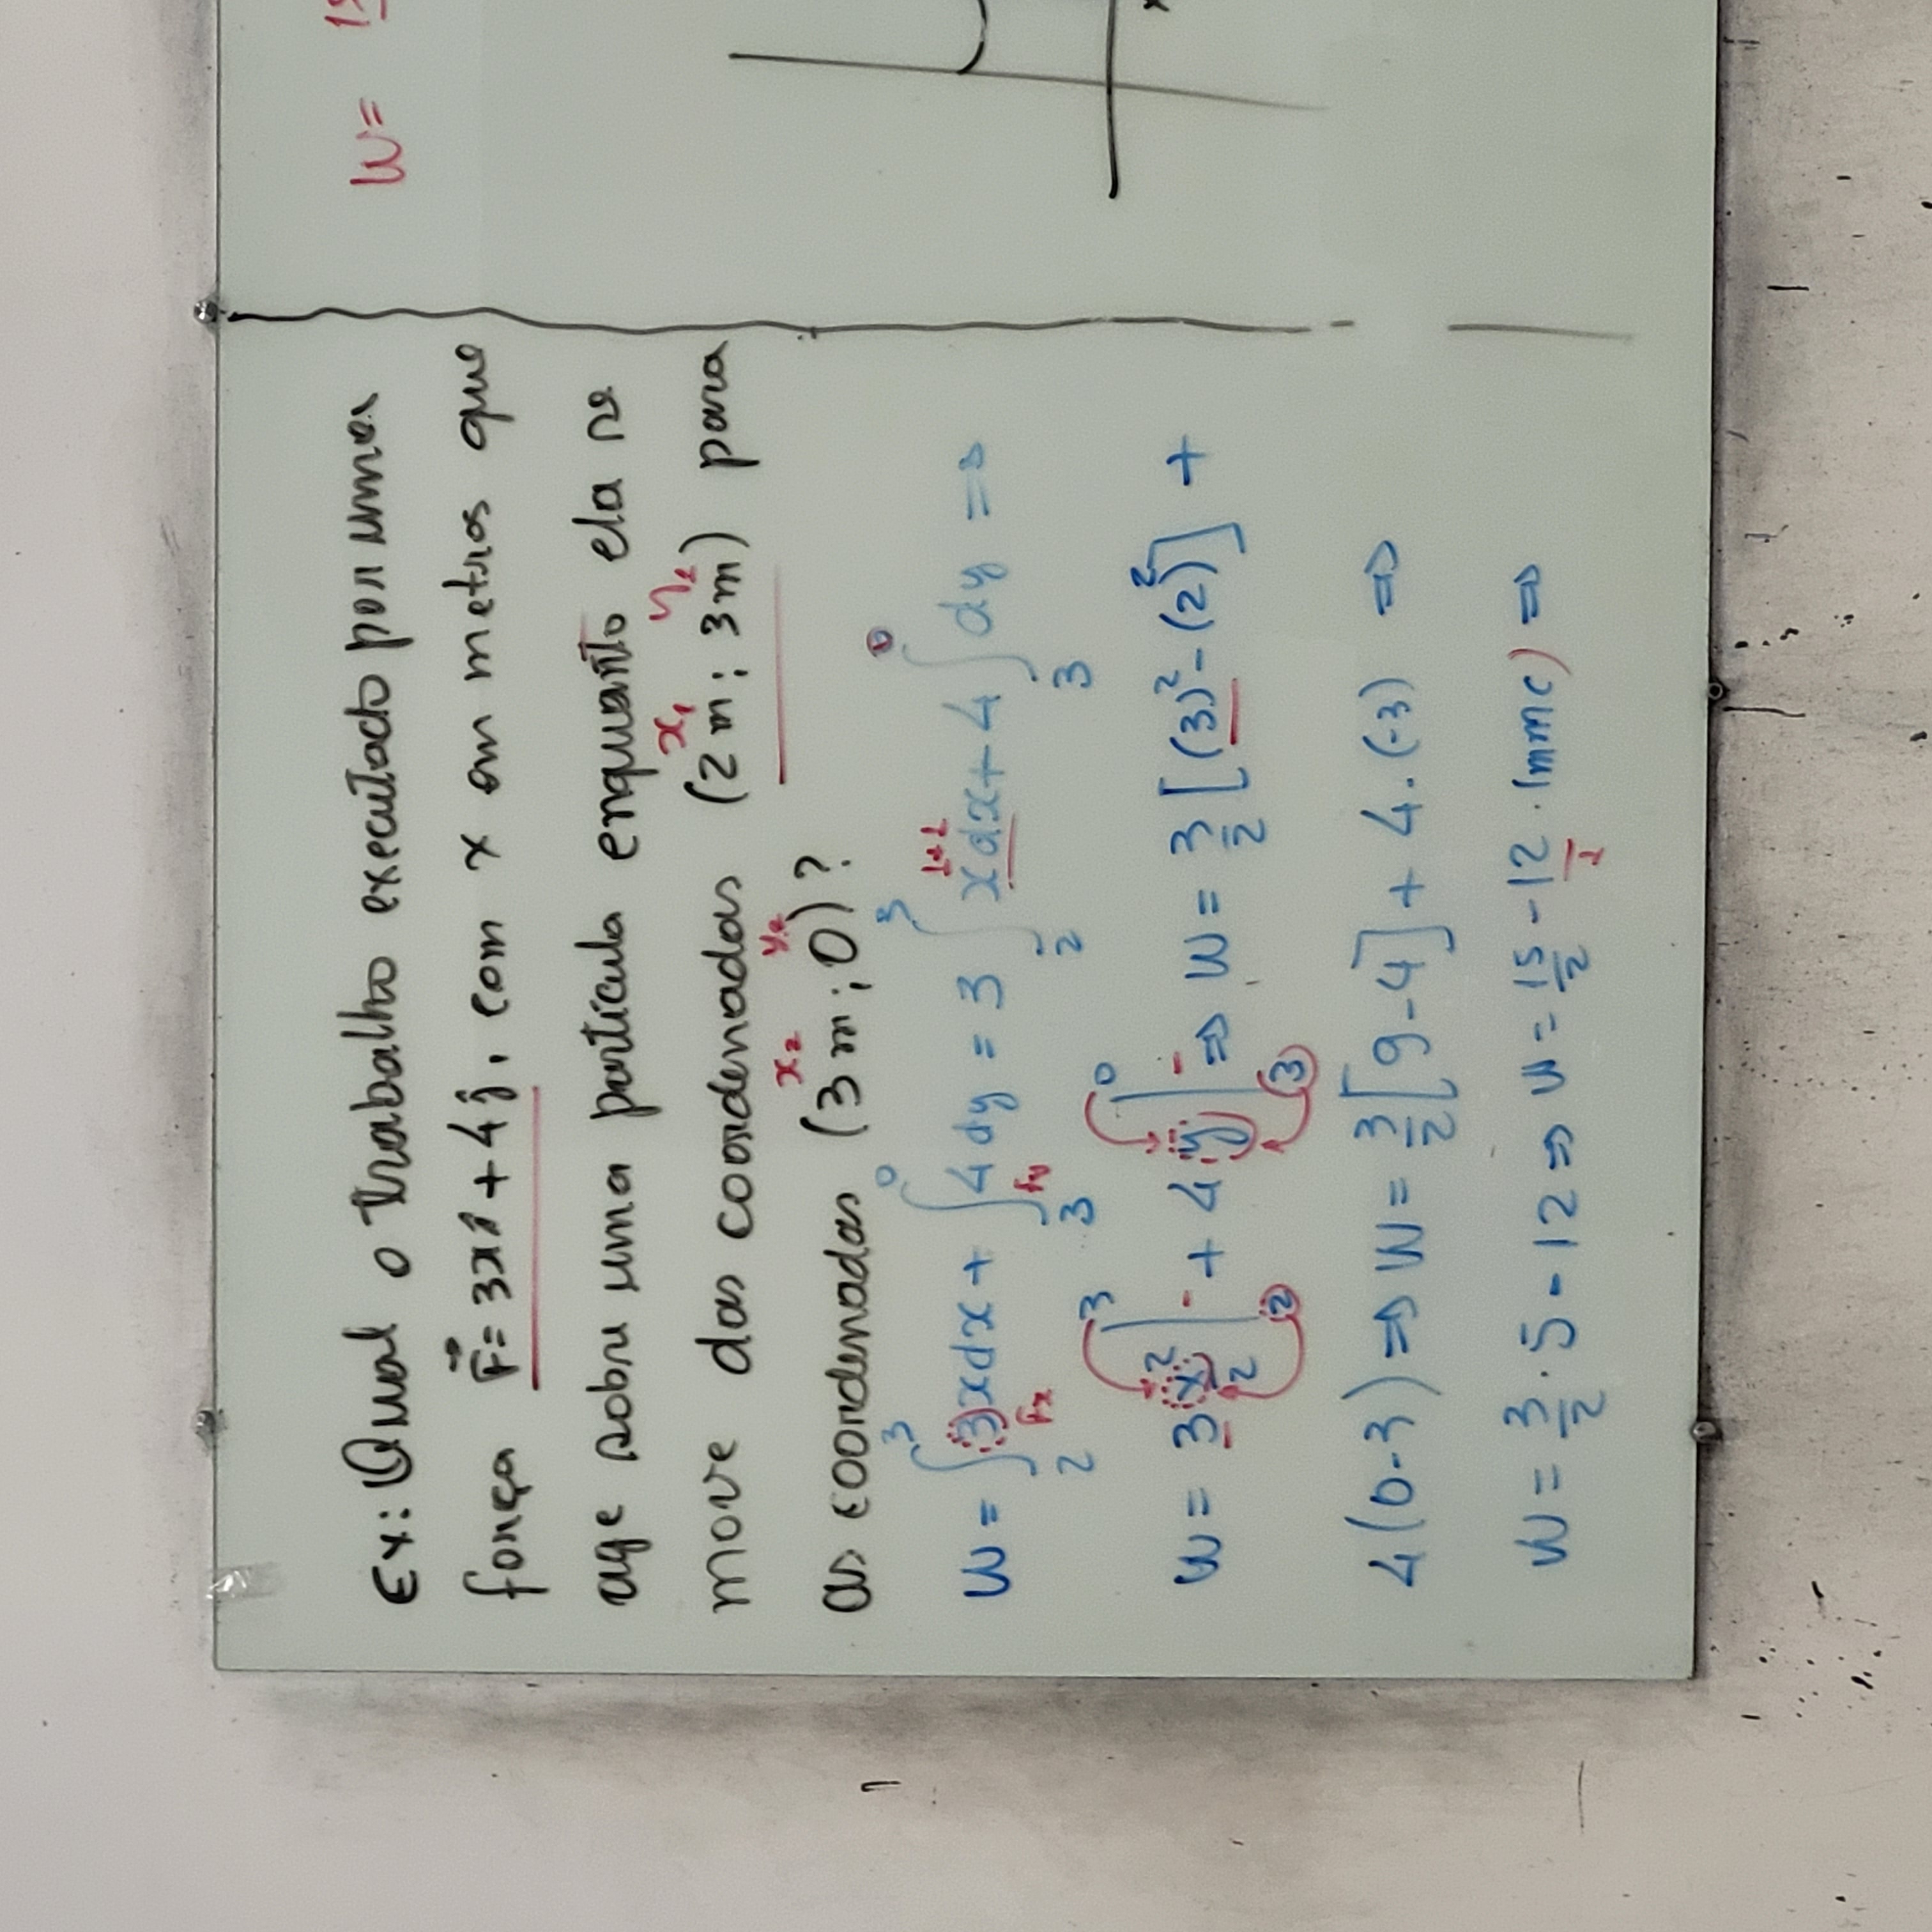 Ex: Qual o trabalho executado por uma
força F⃗ = 3xî + 4ĵ, com x em metros que
age sobre uma partícula enquanto ela se
x₁ y₁
move das coordenadas (2m; 3m) para
x₂ y₂
as coordenadas (3m; 0)?
W = ∫₂³ 3xdx + ∫₃⁰ 4dy = 3 ∫₂³ x¹⁺¹dx + 4 ∫₃⁰ dy ⇒
fx fy
W = 3 x²/2 |₂³ + 4 y |₃⁰ ⇒ W = 3/2 [(3)² - (2)²] +
4(0-3) ⇒ W = 3/2 [9-4] + 4.(-3) ⇒
W = 3/2 . 5 - 12 ⇒ W = 15/2 - 12/1 . (mmc) ⇒
W =